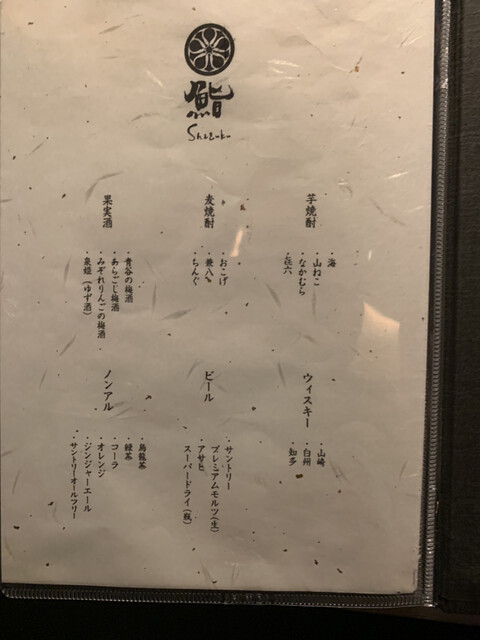 鮨
芋焼酎
・海
・山ねこ
・なかむら
・㐂六
麦焼酎
・おこげ
・兼八
・ちんぐ
果実酒
・青谷の梅酒
・あらごし梅酒
・みぞれりんごの梅酒
・泉姫（ゆず酒）
ウィスキー
・山崎
・白州
・知多
ビール
・サントリー
プレミアムモルツ（生）
・アサヒ
スーパードライ（瓶）
ノンアル
・烏龍茶
・緑茶
・コーラ
・オレンジ
・ジンジャーエール
・サントリーオールフリー